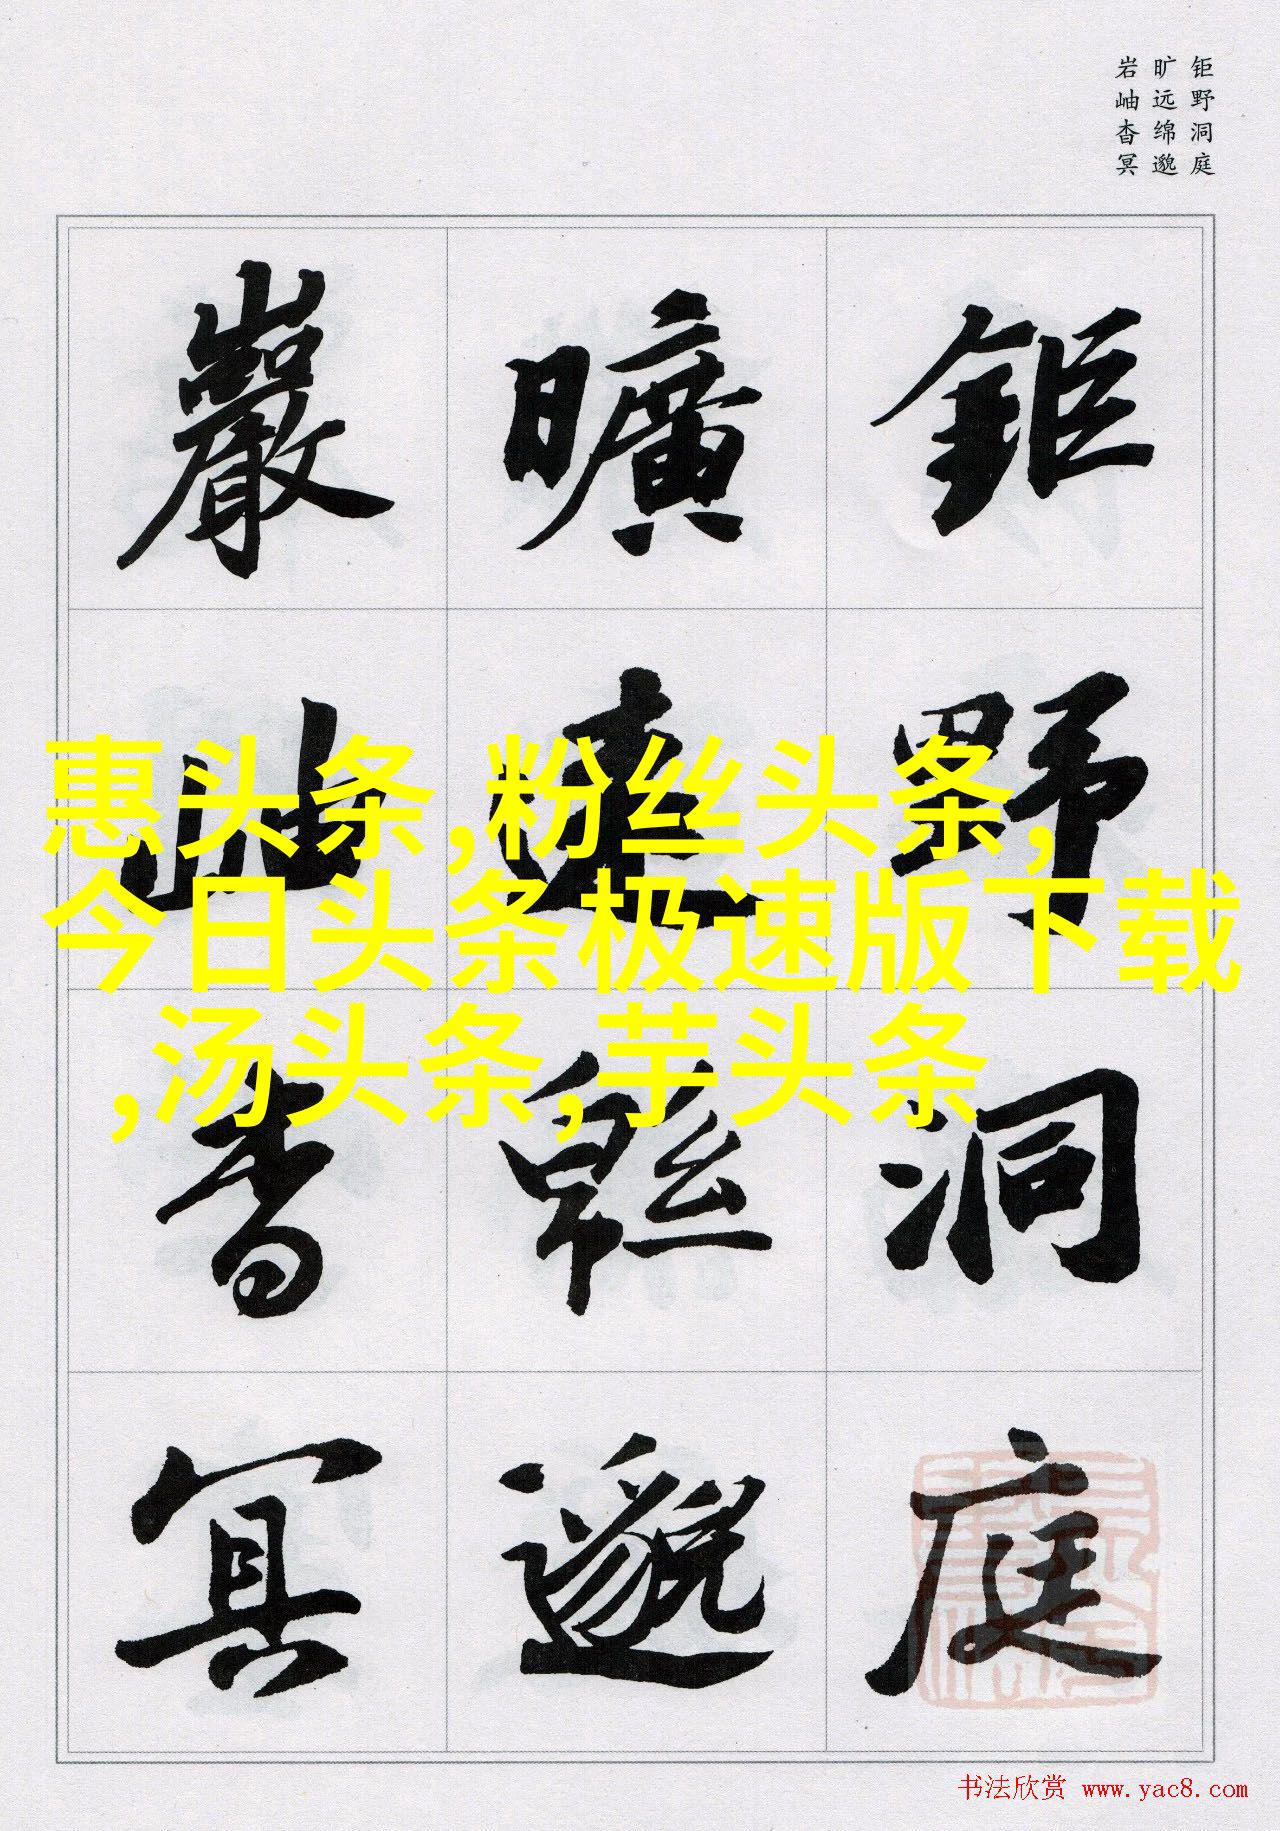 钜野洞庭
旷远绵邈
岩岫杳冥
鉅野洞庭
曠遠緜邈
巖岫杳冥
惠头条,粉丝头条,
今日头条极速版下载
,汤头条,芋头条
书法欣赏 www.yac8.com